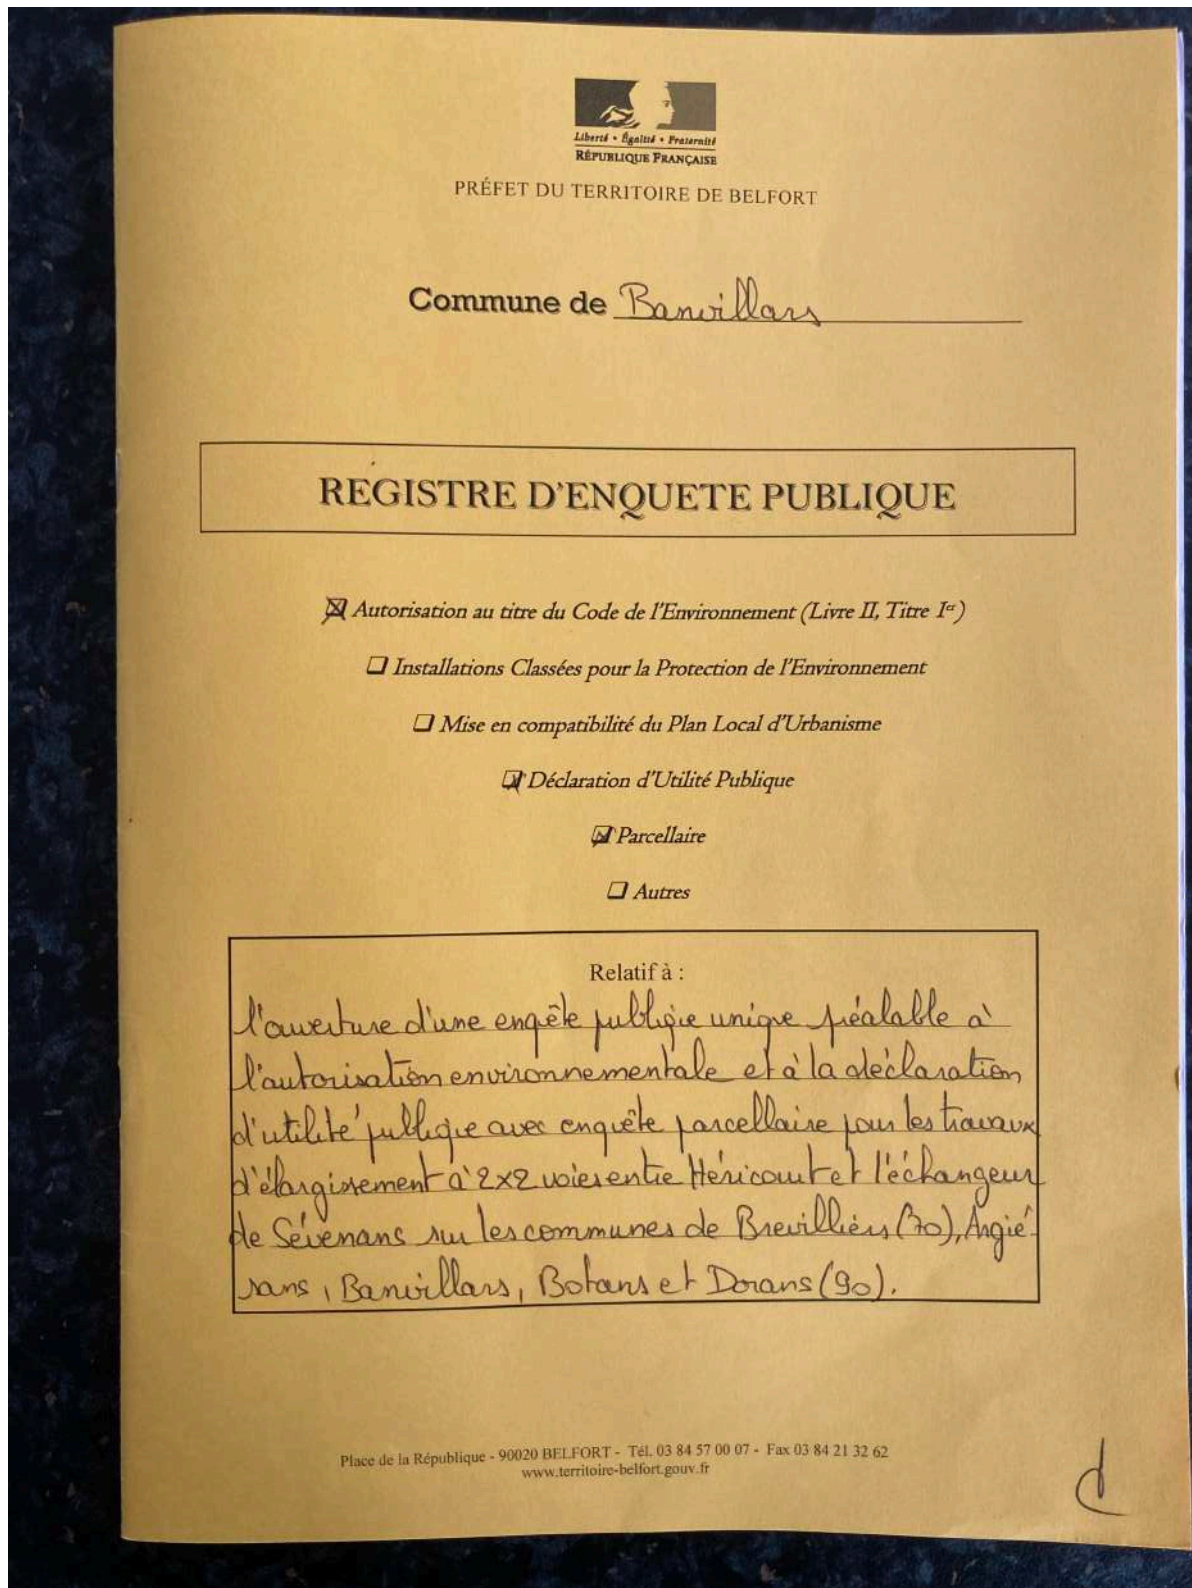 Liberté • Égalité • Fraternité
RÉPUBLIQUE FRANÇAISE
PRÉFET DU TERRITOIRE DE BELFORT
Commune de Banvillars
REGISTRE D'ENQUETE PUBLIQUE
☒ Autorisation au titre du Code de l'Environnement (Livre II, Titre Ier)
☐ Installations Classées pour la Protection de l'Environnement
☐ Mise en compatibilité du Plan Local d'Urbanisme
☒ Déclaration d'Utilité Publique
☒ Parcellaire
☐ Autres
Relatif à :
l'ouverture d'une enquête publique unique préalable à
l'autorisation environnementale et à la déclaration
d'utilité publique avec enquête parcellaire pour les travaux
d'élargissement à 2x2 voies entre Héricourt et l'échangeur
de Sévenans sur les communes de Brevilliers (70), Argié-
sans, Banvillars, Botans et Dorans (90).
Place de la République - 90020 BELFORT - Tél. 03 84 57 00 07 - Fax 03 84 21 32 62
www.territoire-belfort.gouv.fr